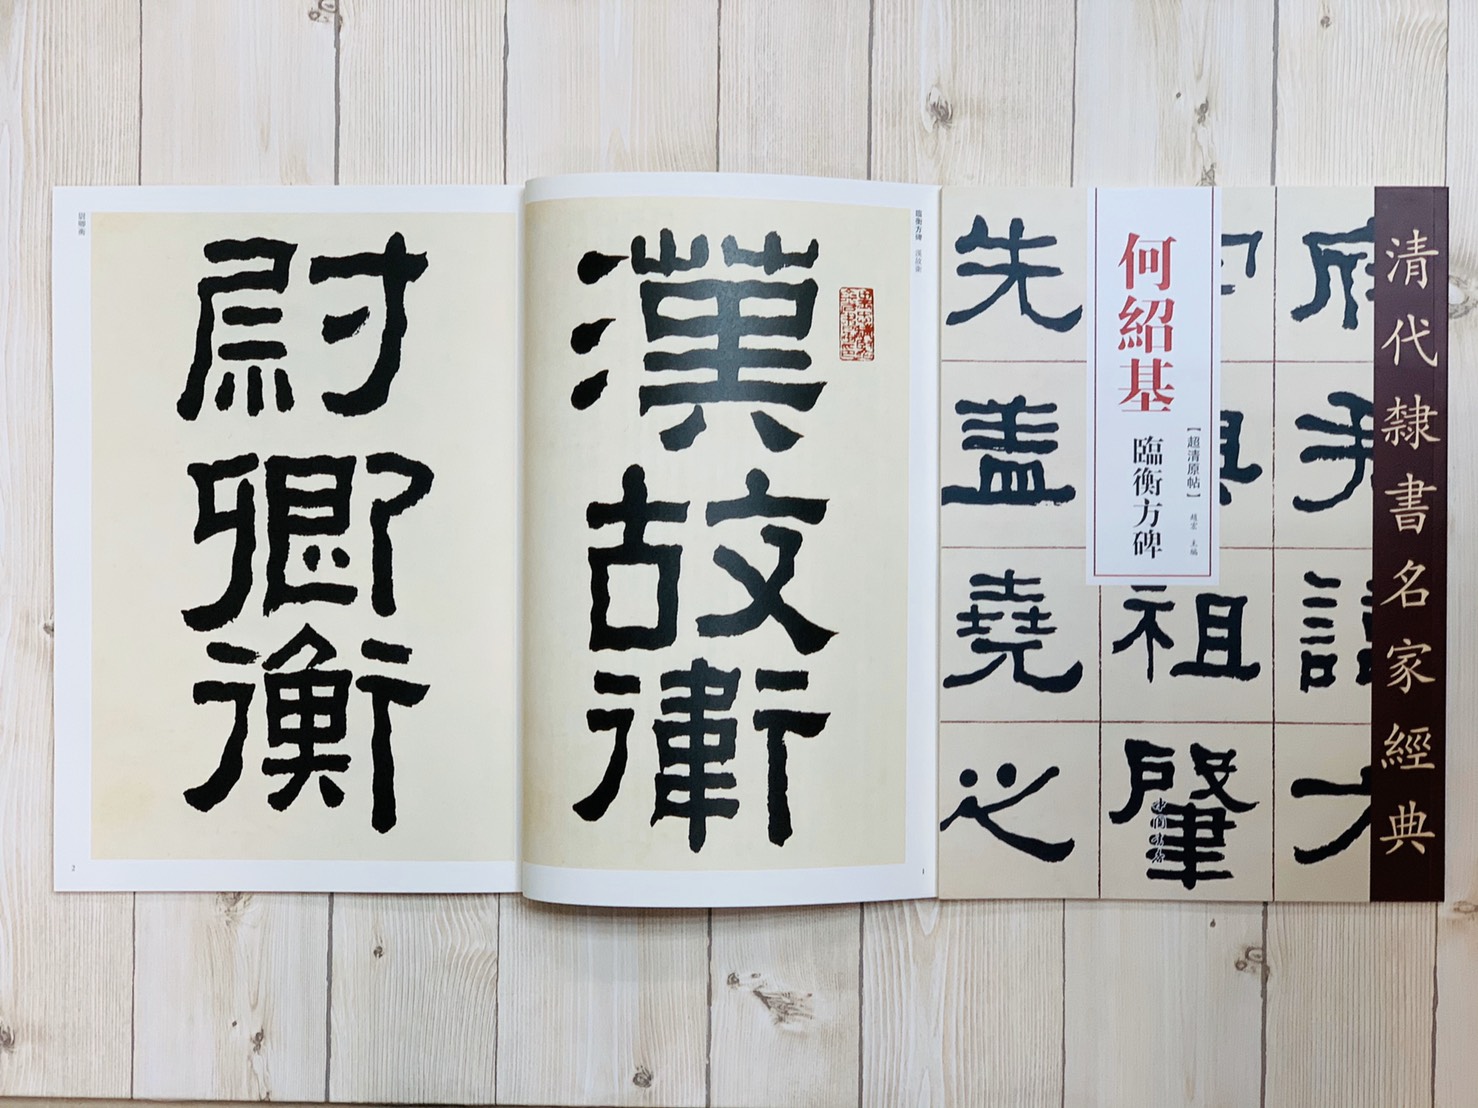 清代隸書名家經典
何紹基
臨衡方碑
【超清原帖】
趙宏 主編
中國書店
府君諱方
字興祖肇
先蓋堯之
臨衡方碑 漢故衛
漢故衛
1
尉卿衡
尉卿衡
2